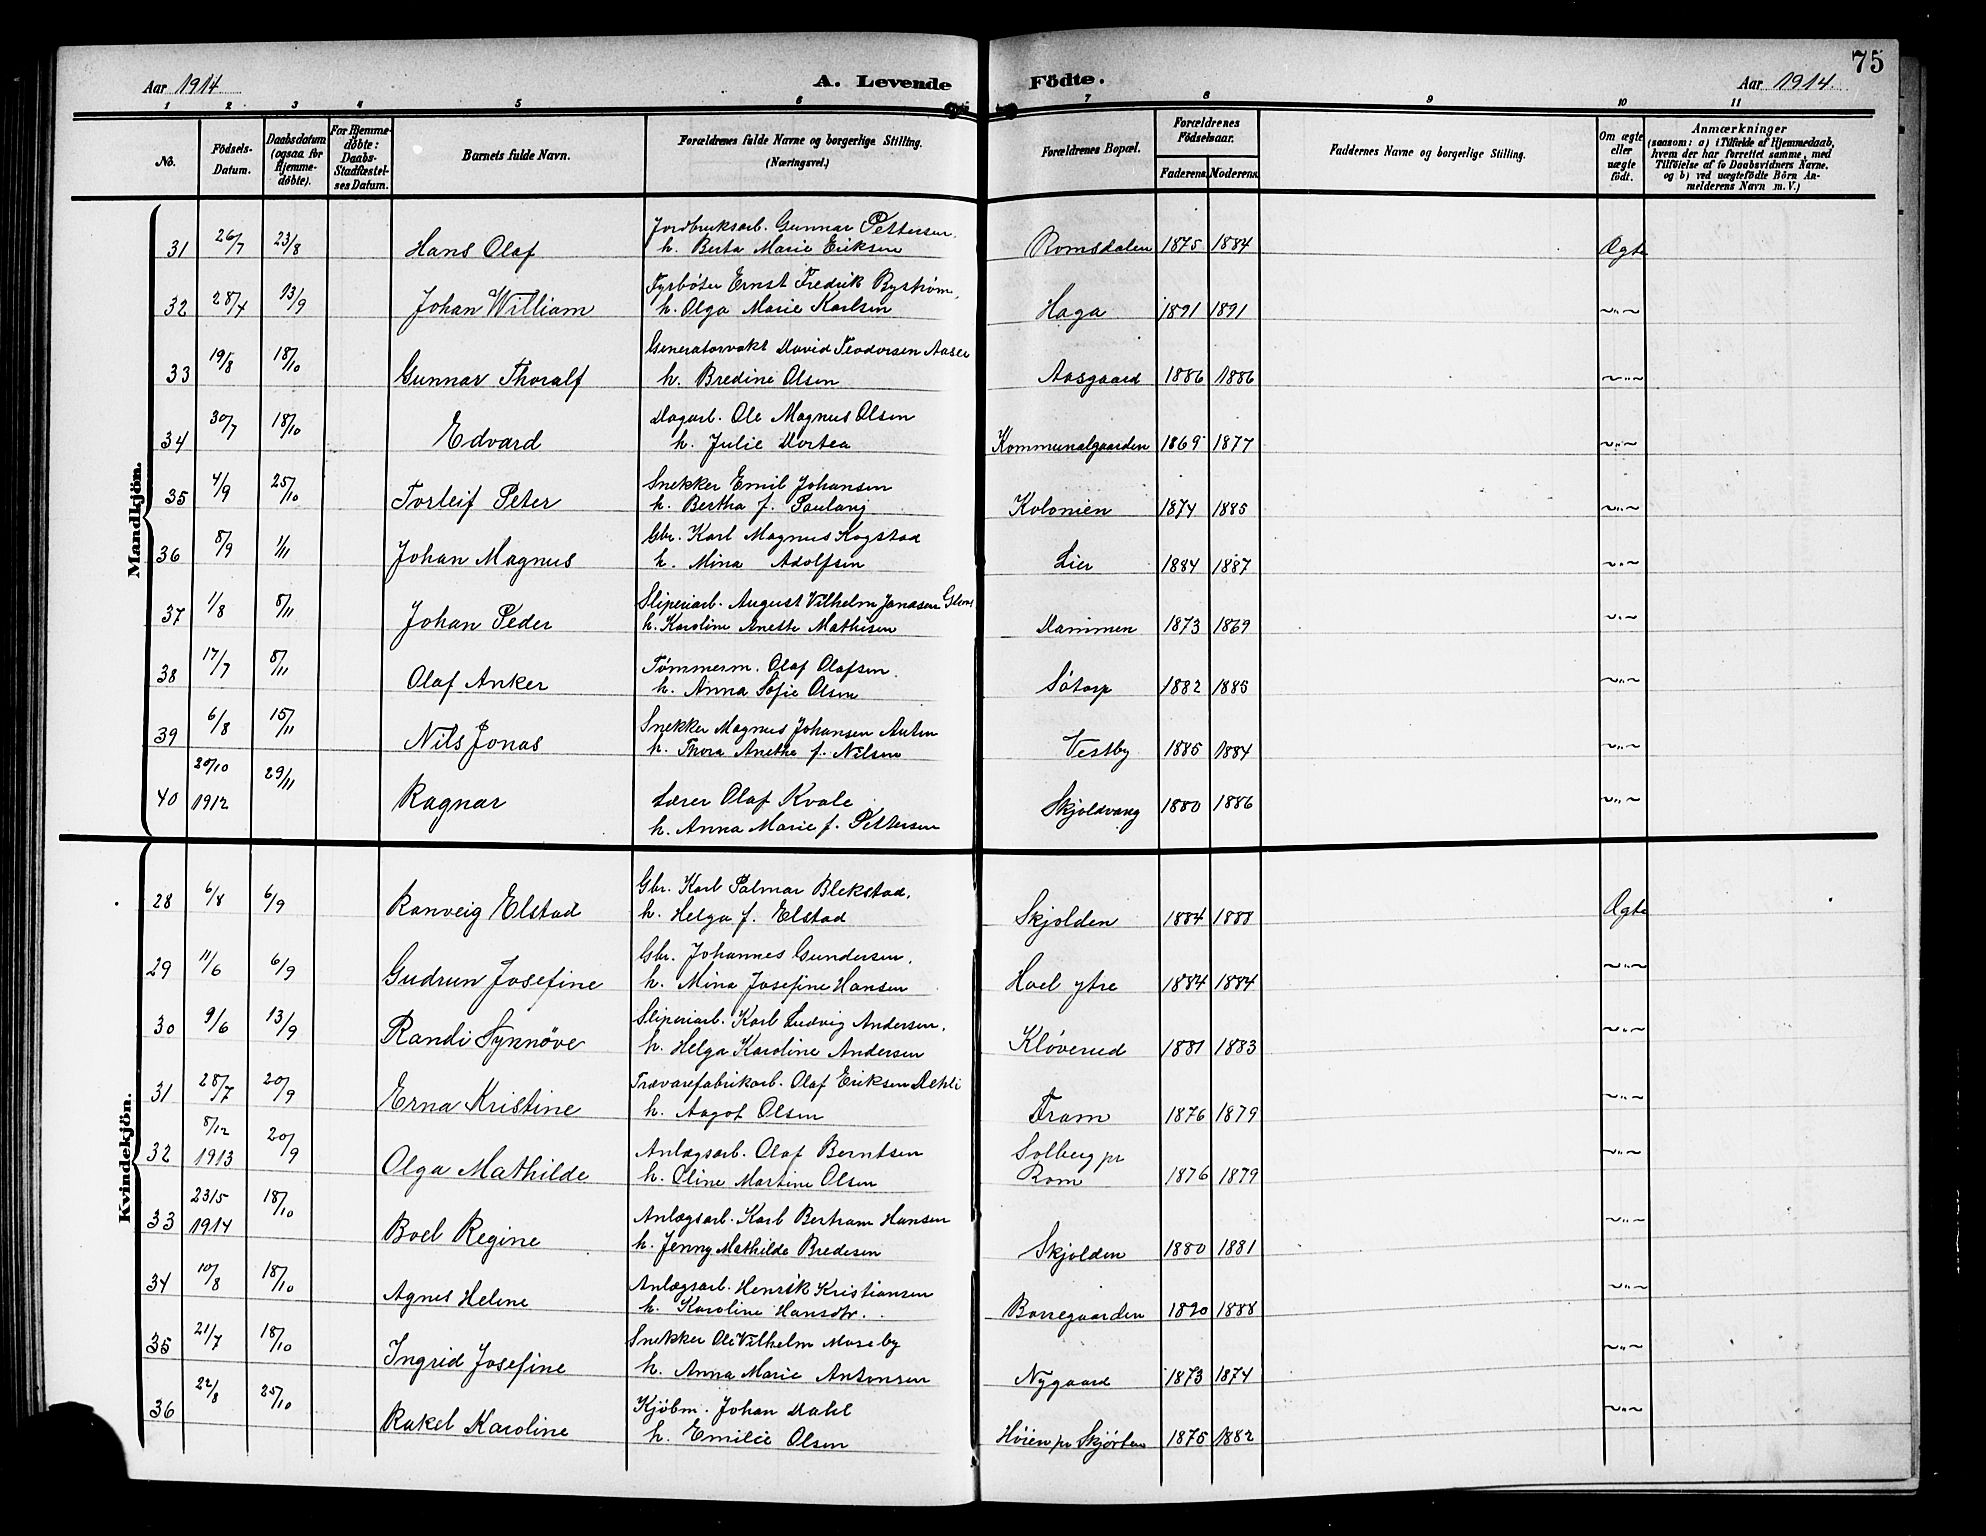 75
Aar 1914. A. Levende Födte. Aar 1914.
1 2 3 4 5 6 7 8 9 10 11
No. Födsels-Datum. Daabsdatum (ogsaa for Hjemme-döbte). For Hjemme-döbte: Daabs-Stadfæstel-ses Datum. Barnets fulde Navn. Forældrenes fulde Navne og borgerlige Stilling. (Næringsvei.) Forældrenes Bopæl. Forældrenes Födselsaar. Faderens. Moderens. Faddernes Navne og borgerlige Stilling. Om ægte eller uægte födt. Anmærkninger (saasom: a) i Tilfælde af Hjemmedaab, hvem der har forrettet samme, med Tilföielse af to Daabsvidners Navne. og b) ved uægtefödte Börn An-melderens Navn m. V.)
Mandkjön.
Jordbruksarb. Gunnar Pettersen,
31 26/7 23/8 Hans Olaf h. Berta Marie Eriksen Romsdalen 1875 1884 Ægte
Fyrbøter Ernst Fredrik Bystrøm,
32 28/4 13/9 Johan William h. Olga Marie Karlsen Haga 1891 1891 ~"~
Generatorvakt David Teodorsen Aaser
33 19/8 18/10 Gunnar Thoralf h. Bredine Olsen Aasgaard 1886 1886 ~"~
Dagarb. Ole Magnus Olsen
34 30/7 18/10 Edvard h. Julie Dortea Kommunalgaarden 1869 1877 ~"~
Snekker Emil Johansen
35 4/9 25/10 Torleif Peter h. Bertha f. Paulang Kolonien 1874 1885 ~"~
Gbr. Karl Magnus Kogstad
36 8/9 1/11 Johan Magnus h. Mina Adolfsen Lier 1884 1887 ~"~
Sliperiarb. August Vilhelm Jonasen
37 1/8 8/11 Johan Peder h. Karoline Anette Mathisen Dammen 1873 1869 ~"~
Tømmerm. Olaf Olafsen.
38 17/7 8/11 Olaf Anker h. Anna Sofie Olsen Sötorp 1882 1885 ~"~
Snekker Magnus Johansen
39 6/8 15/11 Nils Jonas h. Thora Anetha f. Nilsen Vestby 1885 1884 ~"~
20/10
40 1912 29/11 Ragnar Lærer Olaf Kvale Skjoldvang 1880 1886 ~"~
h. Anna Marie f. Pettersen
Kvindekjön.
Gbr. Karl Palmar Blekstad,
28 6/8 6/9 Ranveig Elstad h. Helga f. Elstad Skjolden 1884 1888 Ægte
Gbr. Johannes Gundersen,
29 11/6 6/9 Gudrun Josefine h. Mina Josefine Hansen Hoel ytre 1884 1884 ~"~
Sliperiarb. Karl Ludvig Andersen,
30 9/6 13/9 Randi Synnøve h. Helga Karoline Andersen Kløverud 1881 1883 ~"~
Trævarefabrikarb. Olaf Eriksen Dehli
31 28/7 20/9 Erna Kristine h. Aagot Olsen Fram 1876 1879 ~"~
8/12 Anlægsarb. Olaf Berntsen Solberg pr
32 1913 20/9 Olga Mathilde h. Oline Martine Olsen Rom 1876 1879 ~"~
23/5 Anlægsarb. Karl Bertram Hansen
33 1914 18/10 Boel Regine h. Jenny Mathilde Bredesen Skjolden 1880 1881 ~"~
Anlægsarb. Henrik Kristiansen
34 10/8 18/10 Agnes Helene h. Karoline Hansdtr. Borregaarden 1890 1888 ~"~
Snekker Ole Vilhelm Moseby
35 21/7 18/10 Ingrid Josefine h. Anna Marie Antonsen Nygaard 1873 1874 ~"~
Kjøbm. Johan Dahl
36 22/8 25/10 Rakel Karoline h. Emilie Olsen Höien pr Skjørten 1875 1882 ~"~